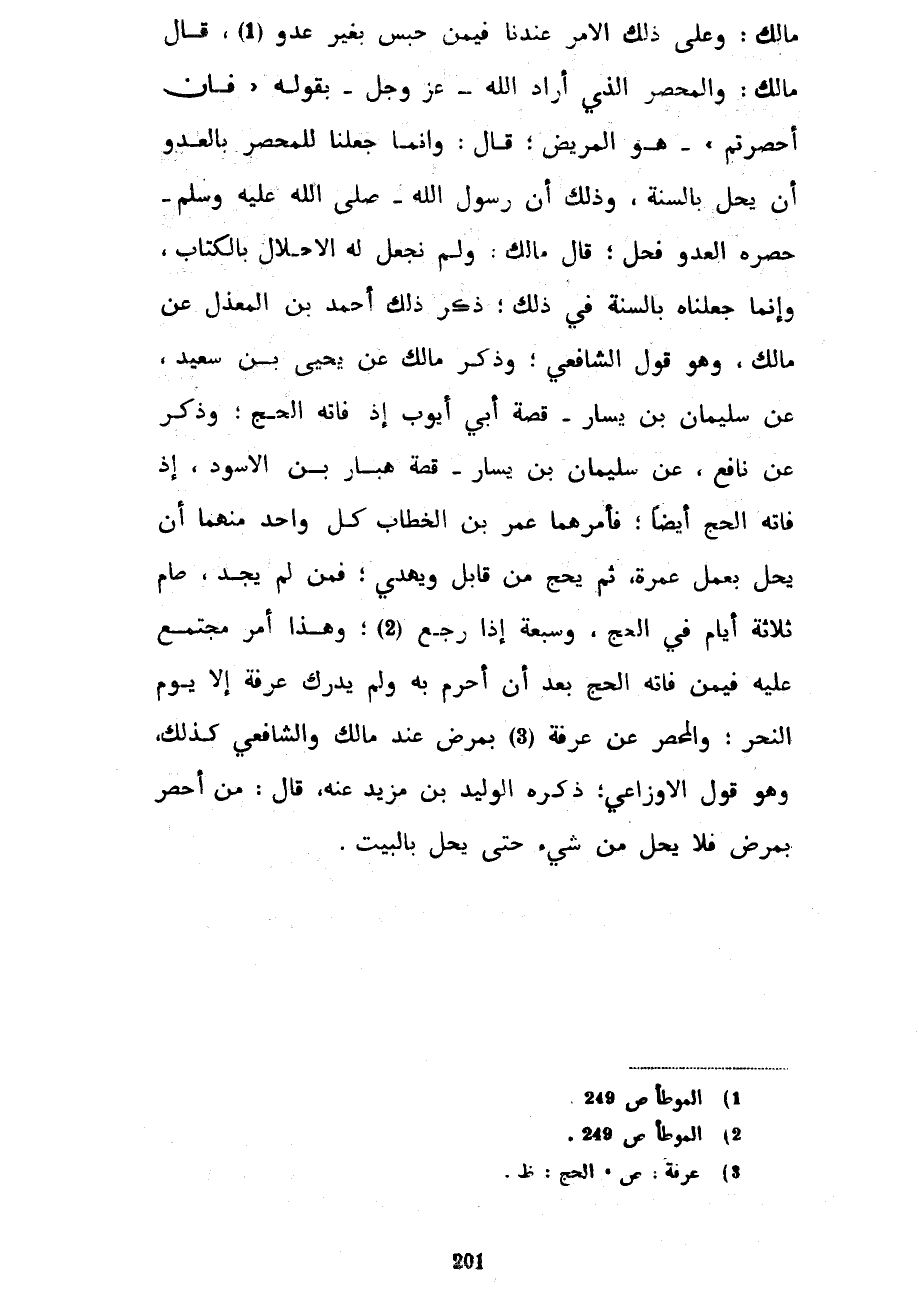 مالك : وعلى ذلك الامر عندنا فيمن حبس بغير عدو (1) ، قال
مالك : والمحصر الذي أراد الله – عز وجل – بقوله « فان
أحصرتم » – هو المريض ؛ قال : وانما جعلنا للمحصر بالعدو
أن يحل بالسنة ، وذلك أن رسول الله – صلى الله عليه وسلم –
حصره العدو فحل ؛ قال مالك : ولم نجعل له الاحلال بالكتاب ،
وإنما جعلناه بالسنة في ذلك ؛ ذكر ذلك أحمد بن المعذل عن
مالك ، وهو قول الشافعي ؛ وذكر مالك عن يحيى بن سعيد ،
عن سليمان بن يسار – قصة أبي أيوب إذ فاته الحج ؛ وذكر
عن نافع ، عن سليمان بن يسار – قصة هبار بن الاسود ، إذ
فاته الحج أيضاً ؛ فأمرهما عمر بن الخطاب كل واحد منهما أن
يحل بعمل عمرة، ثم يحج من قابل ويهدي ؛ فمن لم يجد ، صام
ثلاثة أيام في الحج ، وسبعة إذا رجع (2) ؛ وهذا أمر مجتمع
عليه فيمن فاته الحج بعد أن أحرم به ولم يدرك عرفة إلا يوم
النحر ؛ والمحصر عن عرفة (3) بمرض عند مالك والشافعي كذلك،
وهو قول الاوزاعي؛ ذكره الوليد بن مزيد عنه، قال : من أحصر
بمرض فلا يحل من شيء حتى يحل بالبيت .
1) الموطأ ص 249 .
2) الموطأ ص 249 .
3) عرفة : ص • الحج : ظ .
201